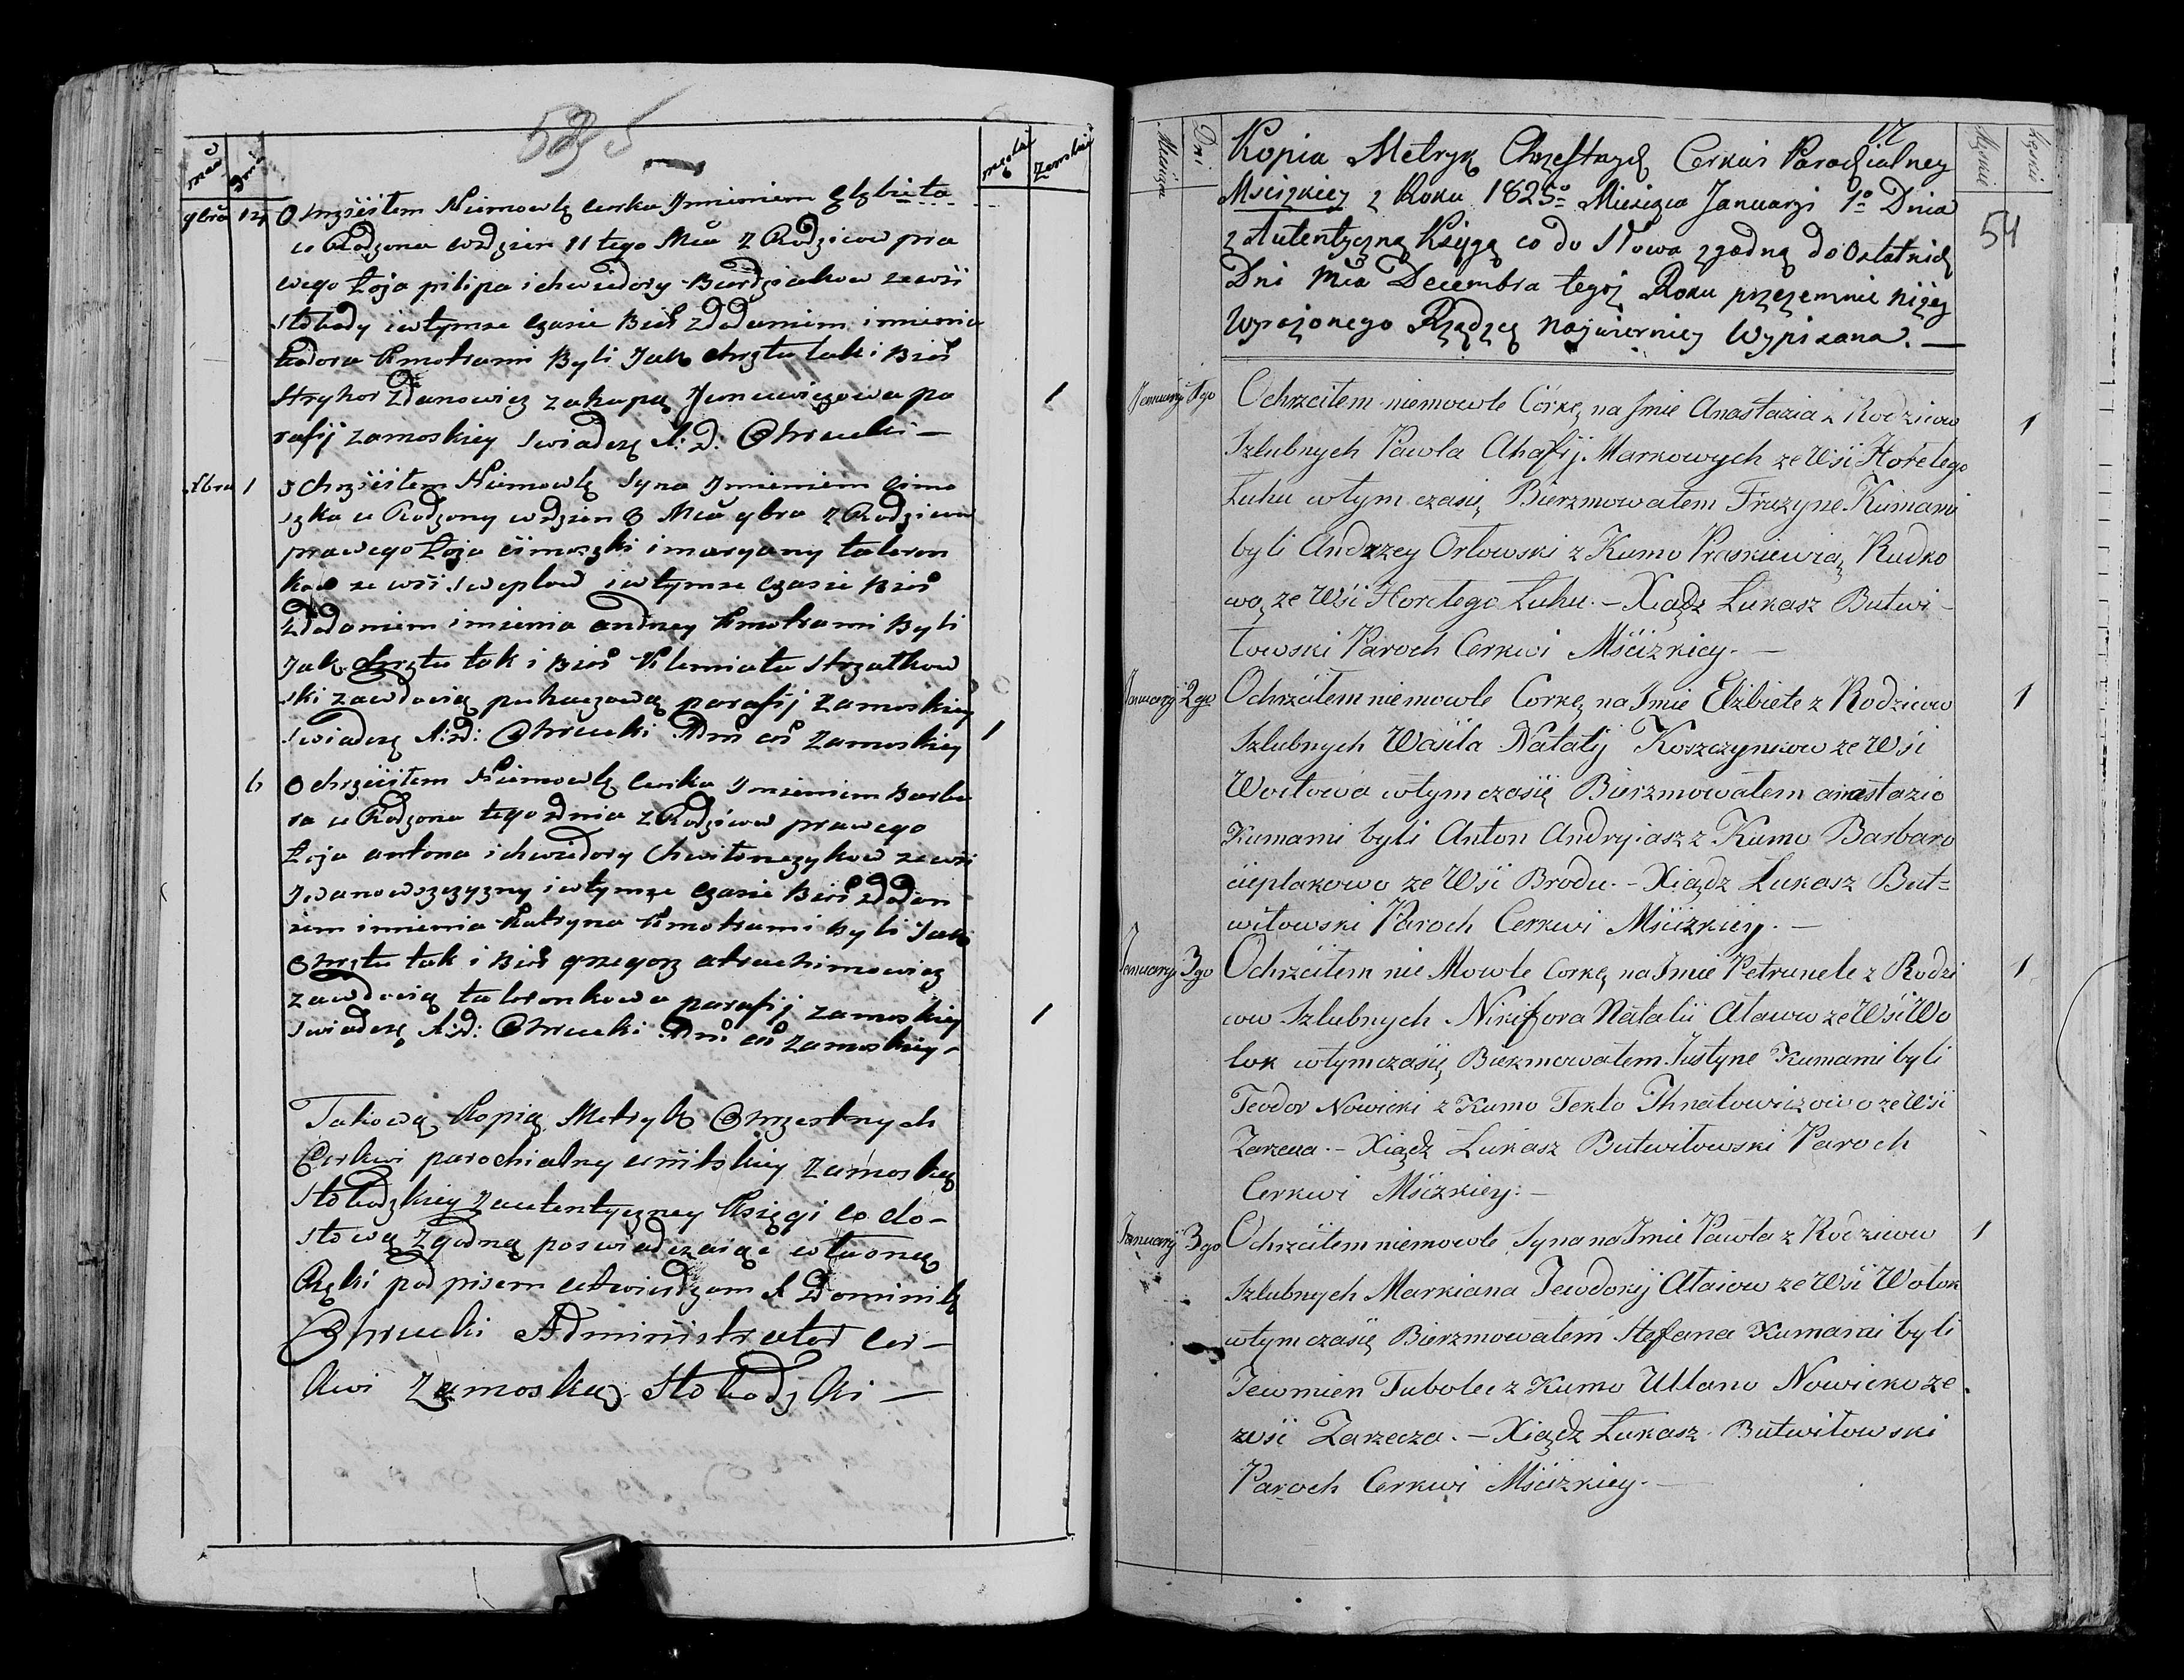 5395
Mca
Dni
męskie
Żenskie
9bra 14 Ochrzciłem Niemowlę curka Jmieniem Elżbieta
u Rodzona wdzien 11 tego Mca z Rodzicow pra
wego Łoja pilipa i chwiedory Burdziakow ze wsi
Słobody i wtymze czasie Bierz zdadaniem imienia
hadora Kmotrami Byli Jak chrztu tak i Bierz
Hryhor Zdanowicz zahapą Jwanowiczowa pa
rafij zamoskiey swiadczę X: D: Ohrucki — 1
Xbra 1 ochrzciłem Niemowlę Syna Jmieniem cimo
szka u Rodzony wdzien 3 Mca 9bra z Rodzicow
prawego Łoja cimoszki i maryany taleron
kow ze wsi Sweplow i wtymze czasie Bierz
zdadaniem imienia andrzey Kmotrami Byli
Jak chrztu tak i Bierz Klemiata Strzałkow
ski zawdocią puhaczową parafij zamoskiey
swiadczę X: D: Ohrucki Adm cer zamoskiey 1
6 ochrzciłem Niemowlę curka Jmieniem Barba
ra u Rodzona tego dnia z Rodzicow prawego
Łoja antona i chwiedory Chwitonczykow ze wsi
Jwanowszczyzny i wtymze czasie Bierz zdadan
iem imienia Katryna Kmotrami Byli Jak
Chrztu tak i Bierz grzegorz atrachimowicz
zawdocią taleronkowa parafij zamoskiey
swiadczę X: D: Ohrucki Adm cer zamoskiey - 1
Takową Kopią Metryk Chrzestnych
Cerkwi parochialny unitskiey Zamoskey
Słobodzkiey zautentyczney Księgi co do-
słowa zgodną poswiadczaiąc własną
Ręki podpisem utwierdzam X Dominik
Ohrucki Administrator cer-
kwi Zamoskey Słobodzki —
Miesiąca
Dni
Męskie
54
Kopia Metryk Chrzestnych Cerkwi Parochialney
Msciżkiey z Roku 1825º Miesięca Januarji 1º Dnia
z Autentyczną Księgą co do Słowa zgodną do Ostatnich
Dni Mca Decembra tegoż Roku przezemnie niżey
Wyrażonego Rządzcę Naywierniey Wypisana. —
Januarij 1go Ochrzciłem niemowle Córkę na Jmie Anastazia z Rodzicow 1
Szlubnych Pawła Ahafij. Markowych ze Wsi Horełego
Luhu wtym czasię Bierzmowałem Fruzyne Kumami
byli Andrzey Orłowski z Kumo Praskiewią Rudko
wą ze Wsi Horełego Luhu. — Xiądz Łukasz Butwi-
łowski Paroch Cerkwi Mścizkiey. —
Januarij 2go Ochrzciłem niemowle Corkę na Jmie Elżbiete z Rodzicow 1
Szlubnych Wasila Natalij Koszczynkow ze Wsi
Wołowa wtym czasię Bierzmowałem anastazio
Kumami byli Anton Andryiasz z Kumo Barbaro
cieplakowo ze Wsi Brodu. — Xiądz Łukasz But=
wiłowski Paroch Cerkwi Mścizkiey. —
Januarij 3go Ochrzciłem nie Mowle Corkę na Jmie Petrunele z Rodzi 1
cow Szlubnych Nikifora Natalii Ataiow ze Wsi Wo
lok wtym czasię Bierzmowałem Justyne Kumami byli
Teodor Nowicki z Kumo Teklo Jhnatowiczowo ze Wsi
Zarzecza. — Xiądz Łukasz Butwiłowski Paroch
Cerkwi Mścizkiey. —
Januarij 3go Ochrzciłem niemowle Syna na Jmie Pawła z Rodzicow 1
Szlubnych Markiana Tewdorij Ataiow ze Wsi Wołok
wtym czasię Bierzmowałem Stefana Kumami byli
Jewmien Tubolec z Kumo Ullano Nowicko ze
wsi Zarzecza. — Xiądz Łukasz Butwiłowski
Paroch Cerkwi Mścizkiey. —